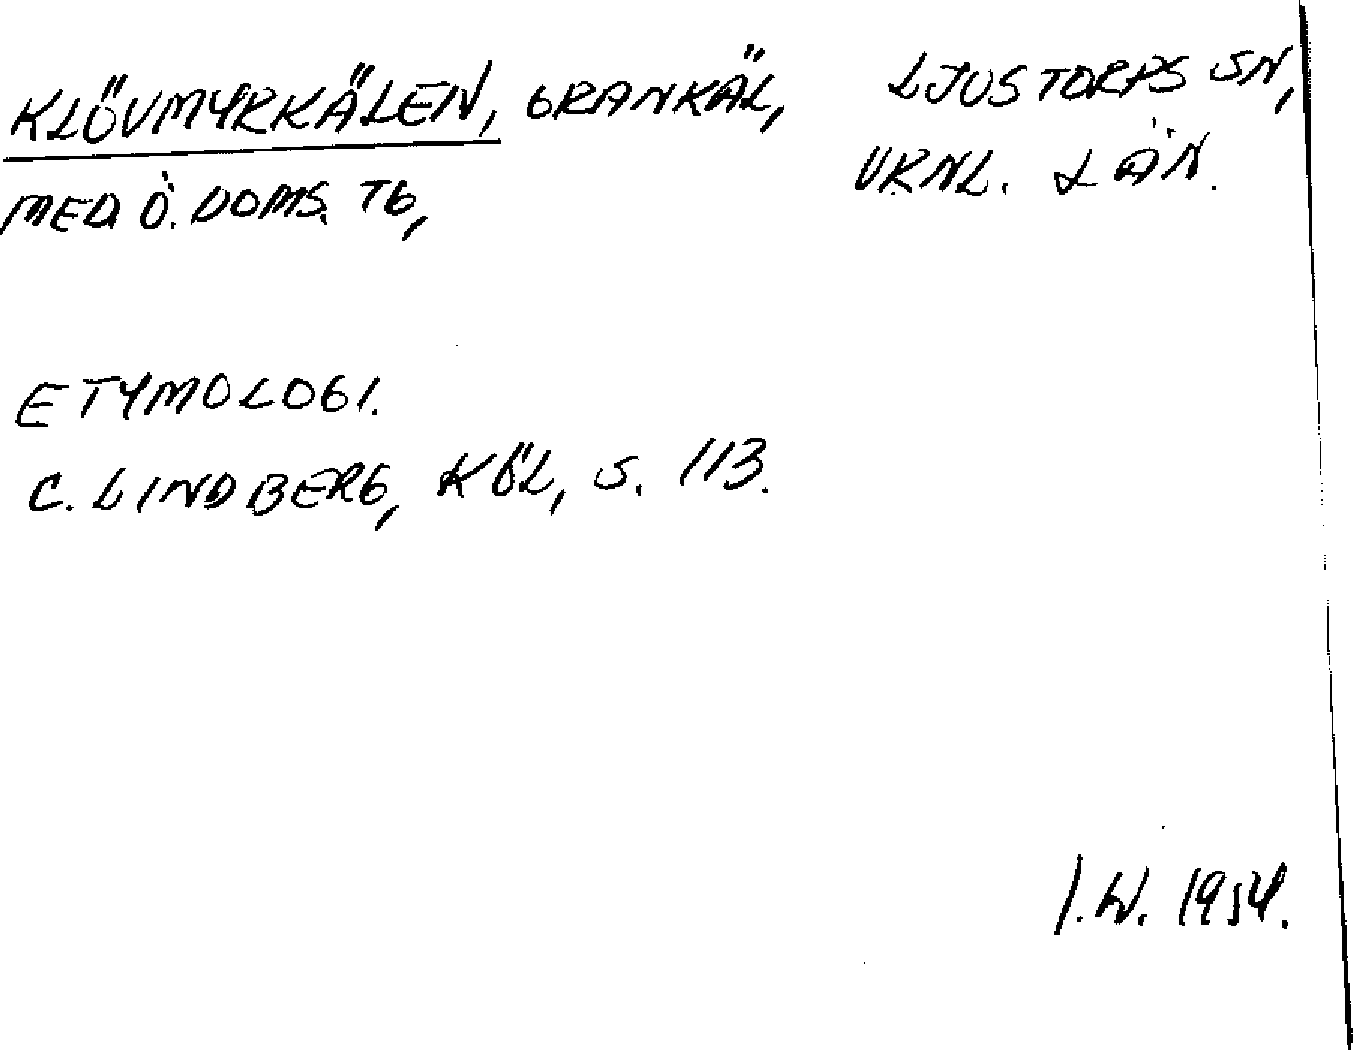 KLÖVMYRKÄLEN, GRANKÄL,
MED Ö. DOMS. TG,
LJUSTORPS SN,
V.RNL. LÄN.
ETYMOLOGI.
C. LINDBERG, KÖL, S. 113.
I.W. 1954.